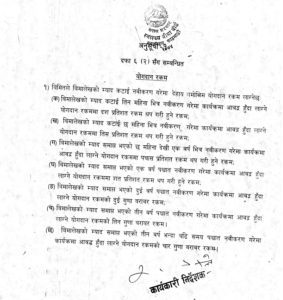 अनुसूची
दफा ६ (२) सँग सम्बन्धित
योगदान रकम
१) विमितले विमालेखको म्याद कटाई नवीकरण गरेमा देहाय बमोजिम योगदान रकम लाग्नेछ
(क) विमालेखको म्याद कटाई तिन महिना भित्र नवीकरण गरेमा कार्यक्रममा आवद्ध हुँदा लाग्ने
योगदान रकममा दश प्रतिशत रकम थप गरी हुने रकम।
(ख) विमालेखको म्याद कटाई छ महिना भित्र नवीकरण गरेमा कार्यक्रममा आवद्ध हुँदा लाग्ने
योगदान रकममा प्रतिशत रकम थप गरी हुने रकम।
(ग) विमालेखको म्याद समाप्त भएको छ महिना देखी एक वर्ष भित्र नवीकरण गरेमा कार्यक्रममा
आवद्ध हुँदा लाग्ने योगदान रकममा पचास प्रतिशत रकम थप गरी हुने रकम।
(घ) विमालेखको म्याद समाप्त भएको एक वर्ष पश्चात नवीकरण गरेमा कार्यक्रममा आवद्ध हुँदा लाग्ने
योगदान रकममा शत प्रतिशत रकम थप गरी हुने रकम।
(ङ) विमालेखको म्याद समाप्त भएको दुई वर्ष पश्चात नवीकरण गरेमा कार्यक्रममा आवद्ध हुँदा
लाग्ने योगदान रकमको दुई गुणा बराबर रकम।
(च) विमालेखको म्याद समाप्त भएको तीन वर्ष पश्चात नवीकरण गरेमा कार्यक्रममा आवद्ध हुँदा लाग्ने
योगदान रकमको तिन गुणा बराबर रकम।
(छ) विमालेखको म्याद समाप्त भएको तीन वर्ष भन्दा बढि समय पश्चात नवीकरण गरेमा
कार्यक्रममा आवद्ध हुँदा लाग्ने योगदान रकमको चार गुणा बराबर रकम।
कार्यकारी निर्देशक